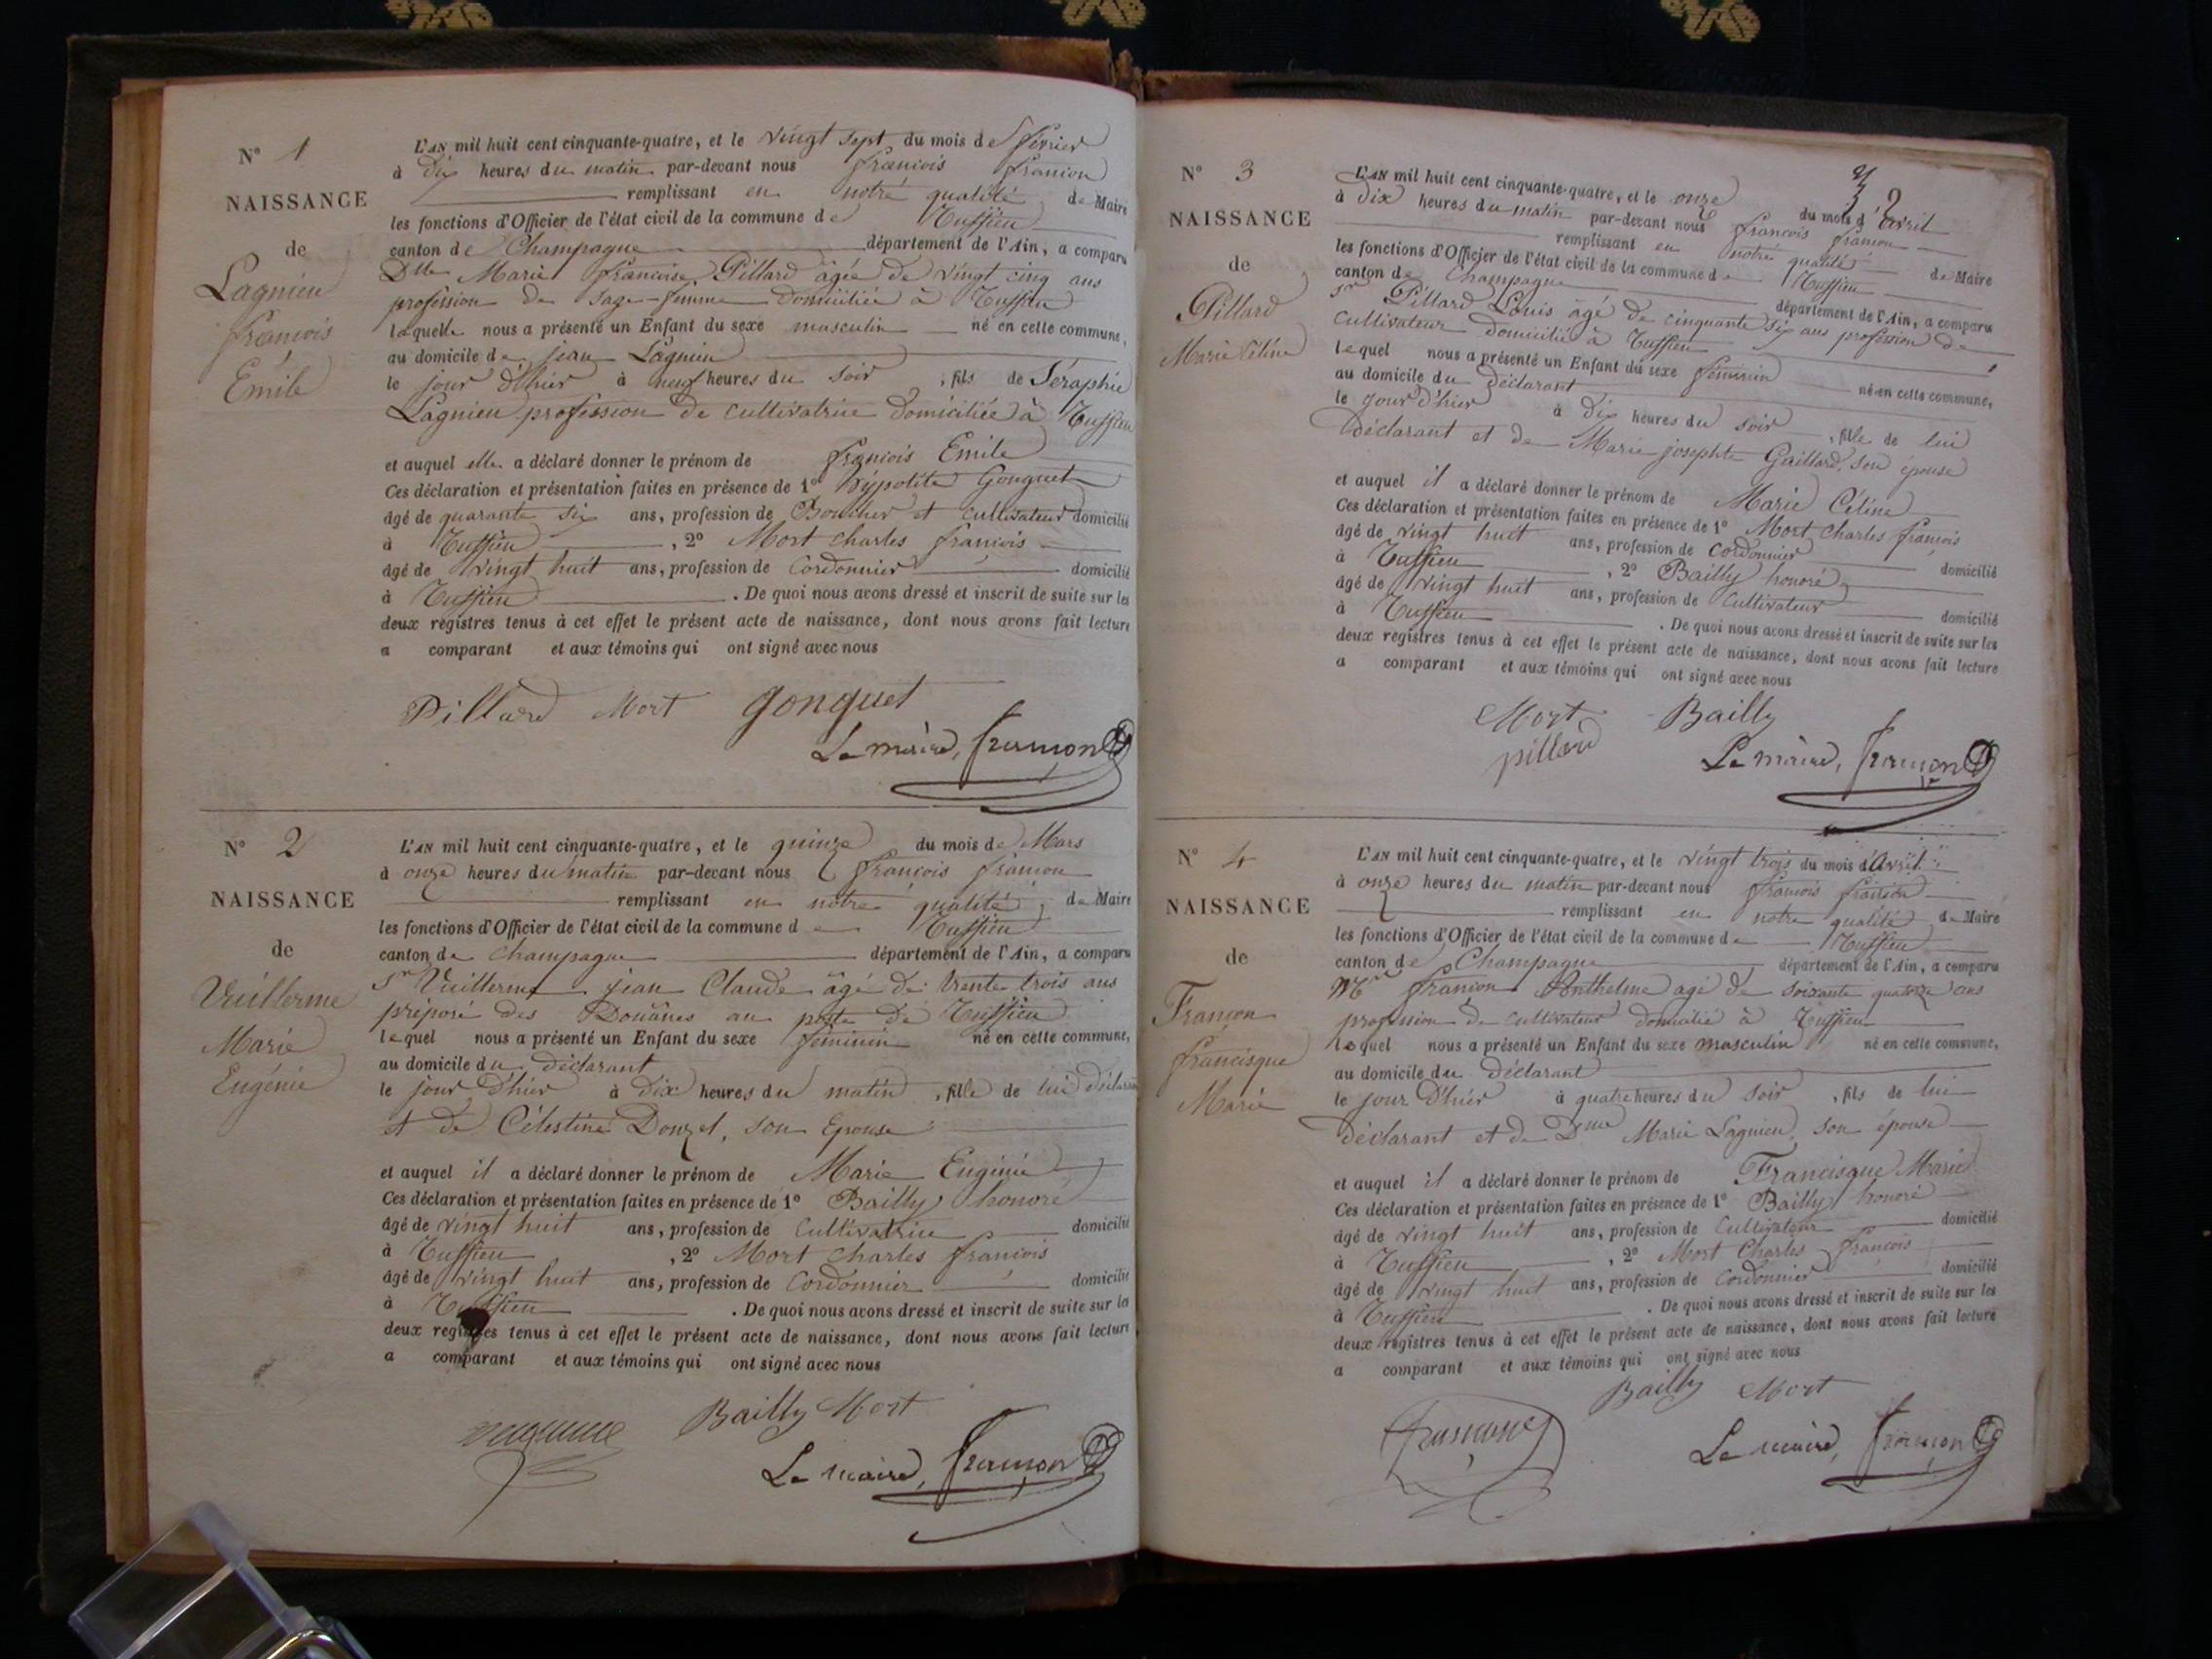 N° 1
NAISSANCE
de
Lagnieu
françois
Emile
L'AN mil huit cent cinquante-quatre, et le vingt sept du mois de février
à dix heures du matin par-devant nous françois françon
remplissant en notre qualité de Maire
les fonctions d'Officier de l'état civil de la commune de Ruffieu
canton de Champagne département de l'Ain, a comparu
Dlle Marie françoise Pillard âgée de vingt cinq ans
profession de sage-femme domiciliée à Ruffieu
laquelle nous a présenté un Enfant du sexe masculin né en cette commune,
au domicile de jean Lagnieu
le jour d'hier à neuf heures du soir, fils de Séraphie
Lagnieu profession de cultivatrice domiciliée à Ruffieu
et auquel elle a déclaré donner le prénom de françois Emile
Ces déclaration et présentation faites en présence de 1° hypolite Gonguet
âgé de quarante six ans, profession de Boucher et cultivateur domicilié
à Ruffieu, 2° Mort Charles françois
âgé de vingt huit ans, profession de Cordonnier domicilié
à Ruffieu. De quoi nous avons dressé et inscrit de suite sur les
deux registres tenus à cet effet le présent acte de naissance, dont nous avons fait lecture
a comparant et aux témoins qui ont signé avec nous
Pillard Mort Gonguet
Le maire, françon
N° 2
NAISSANCE
de
Vuillerme
Marie
Eugénie
L'AN mil huit cent cinquante-quatre, et le quinze du mois de Mars
à onze heures du matin par-devant nous françois françon
remplissant en notre qualité de Maire
les fonctions d'Officier de l'état civil de la commune de Ruffieu
canton de Champagne département de l'Ain, a comparu
Sr Vuillerme jean Claude âgé de trente trois ans
préposé des Douânes au poste de Ruffieu
lequel nous a présenté un Enfant du sexe féminin né en cette commune,
au domicile du déclarant
le jour d'hier à dix heures du matin, fille de lui déclarant
et de Célestine Donzel, son Epouse
et auquel il a déclaré donner le prénom de Marie Eugénie
Ces déclaration et présentation faites en présence de 1° Bailly honoré
âgé de vingt huit ans, profession de Cultivatrice domicilié
à Ruffieu, 2° Mort Charles françois
âgé de vingt huit ans, profession de Cordonnier domicilié
à Ruffieu. De quoi nous avons dressé et inscrit de suite sur les
deux registres tenus à cet effet le présent acte de naissance, dont nous avons fait lecture
a comparant et aux témoins qui ont signé avec nous
Bailly Mort
Le maire, françon
N° 3
NAISSANCE
de
Pillard
Marie Céline
L'AN mil huit cent cinquante-quatre, et le onze du mois d'avril
à dix heures du matin par-devant nous françois françon
remplissant en notre qualité de Maire
les fonctions d'Officier de l'état civil de la commune de Ruffieu
canton de Champagne département de l'Ain, a comparu
Sr Pillard Louis âgé de cinquante six ans profession de
cultivateur domicilié à Ruffieu
lequel nous a présenté un Enfant du sexe féminin né en cette commune,
au domicile du déclarant
le jour d'hier à dix heures du soir, fille de lui
déclarant et de Marie josephte Gaillard, son épouse
et auquel il a déclaré donner le prénom de Marie Céline
Ces déclaration et présentation faites en présence de 1° Mort Charles françois
âgé de vingt huit ans, profession de cordonnier domicilié
à Ruffieu, 2° Bailly honoré
âgé de vingt huit ans, profession de Cultivateur domicilié
à Ruffieu. De quoi nous avons dressé et inscrit de suite sur les
deux registres tenus à cet effet le présent acte de naissance, dont nous avons fait lecture
a comparant et aux témoins qui ont signé avec nous
Mort Bailly
pillard
Le maire, françon
N° 4
NAISSANCE
de
Françon
françisque
Marie
L'AN mil huit cent cinquante-quatre, et le vingt trois du mois d'Avril
à onze heures du matin par-devant nous françois françon
remplissant en notre qualité de Maire
les fonctions d'Officier de l'état civil de la commune de Ruffieu
canton de Champagne département de l'Ain, a comparu
Mr françon Anthelme agé de soixante quatorze ans
profession de cultivateur domicilié à Ruffieu
lequel nous a présenté un Enfant du sexe masculin né en cette commune,
au domicile du déclarant
le jour d'hier à quatre heures du soir, fils de lui
déclarant et de Dme Marie Lagnieu, son épouse
et auquel il a déclaré donner le prénom de Francisque Marie
Ces déclaration et présentation faites en présence de 1° Bailly honoré
âgé de vingt huit ans, profession de Cultivateur domicilié
à Ruffieu, 2° Mort Charles françois
âgé de vingt huit ans, profession de Cordonnier domicilié
à Ruffieu. De quoi nous avons dressé et inscrit de suite sur les
deux registres tenus à cet effet le présent acte de naissance, dont nous avons fait lecture
a comparant et aux témoins qui ont signé avec nous
Bailly Mort
Le maire, françon